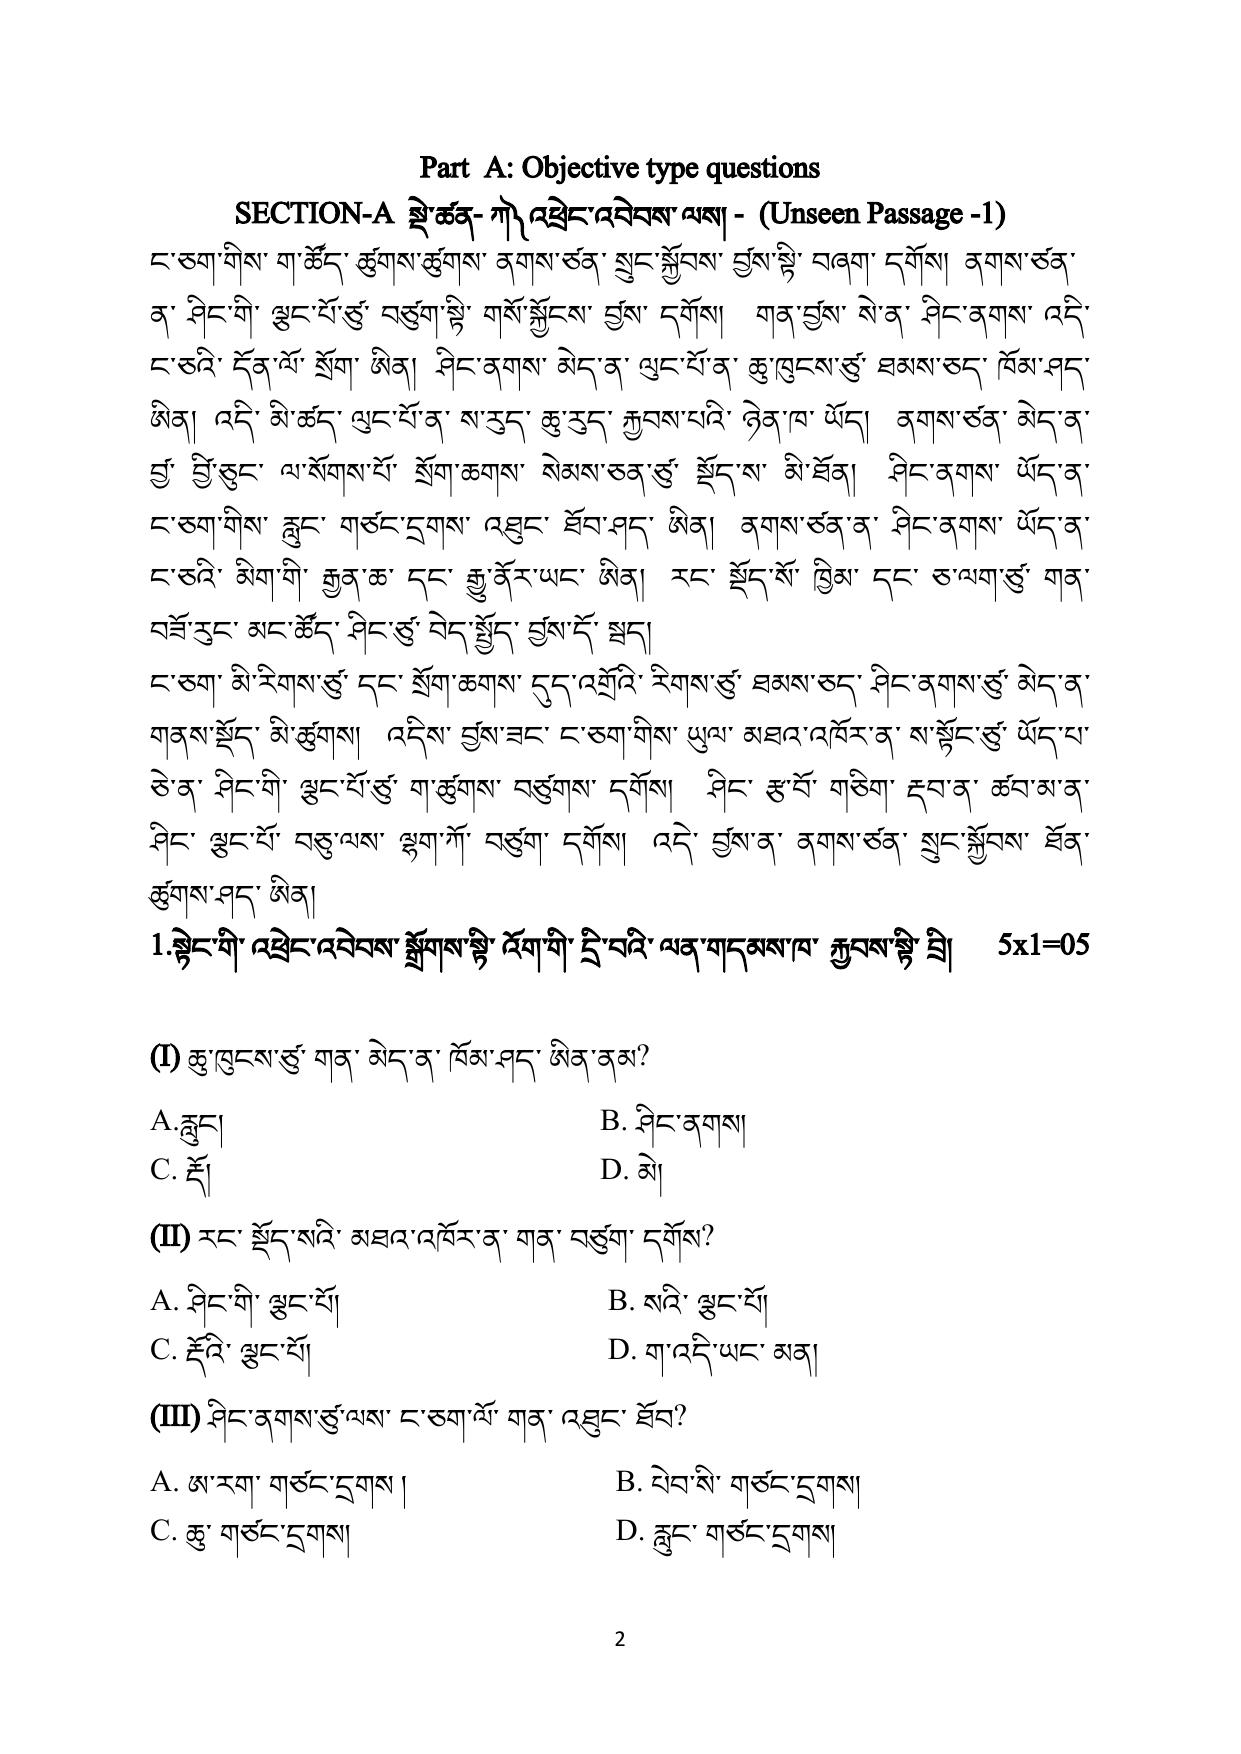 Part A: Objective type questions
SECTION-A སྡེ་ཚན- ཀ༽ འཕྲེང་འབེབས་ ལས། - (Unseen Passage -1)
ང་ཅག་གིས་ ག་ཚོད་ ཚུགས་ཚུགས་ ནགས་ཙན་ སྲུང་སྐྱོབས་ བྱས་སྟི་ བཞག་ དགོས། ནགས་ཙན་
ན་ ཤིང་གི་ ལྕང་པོ་ཙུ་ བཙུག་སྟི་ གསོ་སྐྱོངས་ བྱས་ དགོས། གན་བྱས་ སེ་ན་ ཤིང་ནགས་ འདི་
ང་ཅའི་ དོན་ལོ་ སྲོག་ ཨིན། ཤིང་ནགས་ མེད་ན་ ལུང་པོ་ན་ ཆུ་ཁུངས་ཙུ་ ཐམས་ཅད་ ཁོམ་ཤད་
ཨིན། འདི་ མི་ཚད་ ལུང་པོ་ན་ ས་རུད་ ཆུ་རུད་ རྐྱབས་པའི་ ཉེན་ཁ་ ཡོད། ནགས་ཙན་ མེད་ན་
བྱ་ བྱི་ཅུང་ ལ་སོགས་པོ་ སྲོག་ཆགས་ སེམས་ཅན་ཙུ་ སྡོད་ས་ མི་ཐོན། ཤིང་ནགས་ ཡོད་ན་
ང་ཅག་གིས་ རླུང་ གཙང་དྲགས་ འཐུང་ ཐོབ་ཤད་ ཨིན། ནགས་ཙན་ན་ ཤིང་ནགས་ ཡོད་ན་
ང་ཅའི་ མིག་གི་ རྒྱན་ཆ་ དང་ རྒྱུ་ནོར་ཡང་ ཨིན། རང་ སྡོད་སོ་ ཁྱིམ་ དང་ ཅ་ལག་ཙུ་ གན་
བཟོ་རུང་ མང་ཚོད་ ཤིང་ཙུ་ བེད་སྤྱོད་ བྱས་དོ་ སྦད།
ང་ཅག་ མི་རིགས་ཙུ་ དང་ སྲོག་ཆགས་ དུད་འགྲོའི་ རིགས་ཙུ་ ཐམས་ཅད་ ཤིང་ནགས་ཙུ་ མེད་ན་
གནས་སྡོད་ མི་ཚུགས། འདིས་ བྱས་ཟང་ ང་ཅག་གིས་ ཡུལ་ མཐའ་འཁོར་ན་ ས་སྟོང་ཙུ་ ཡོད་པ་
ཅེ་ན་ ཤིང་གི་ ལྕང་པོ་ཙུ་ ག་ཚུགས་ བཙུགས་ དགོས། ཤིང་ རྩ་བོ་ གཅིག་ རྡབ་ན་ ཚབ་མ་ན་
ཤིང་ ལྕང་པོ་ བཅུ་ལས་ ལྷག་ཀོ་ བཙུག་ དགོས། འདེ་ བྱས་ན་ ནགས་ཙན་ སྲུང་སྐྱོབས་ ཐོན་
ཚུགས་ཤད་ ཨིན།
1.སྟེང་གི་ འཕྲེང་འབེབས་ སྒྲོགས་སྟི་ འོག་གི་ དྲི་བའི་ ལན་གདམས་ཁ་ རྐྱབས་སྟི་ བྲི། 5x1=05
(I) ཆུ་ཁུངས་ཙུ་ གན་ མེད་ན་ ཁོམ་ཤད་ ཨིན་ནམ?
A.རླུང། B. ཤིང་ནགས།
C. རྡོ། D. མེ།
(II) རང་ སྡོད་སའི་ མཐའ་འཁོར་ན་ གན་ བཙུག་ དགོས?
A. ཤིང་གི་ ལྕང་པོ། B. སའི་ ལྕང་པོ།
C. རྡོའི་ ལྕང་པོ། D. ག་འདི་ཡང་ མན།
(III) ཤིང་ནགས་ཙུ་ལས་ ང་ཅག་ལོ་ གན་ འཐུང་ ཐོབ?
A. ཨ་རག་ གཙང་དྲགས ། B. པེབ་སི་ གཙང་དྲགས།
C. ཆུ་ གཙང་དྲགས། D. རླུང་ གཙང་དྲགས།
2